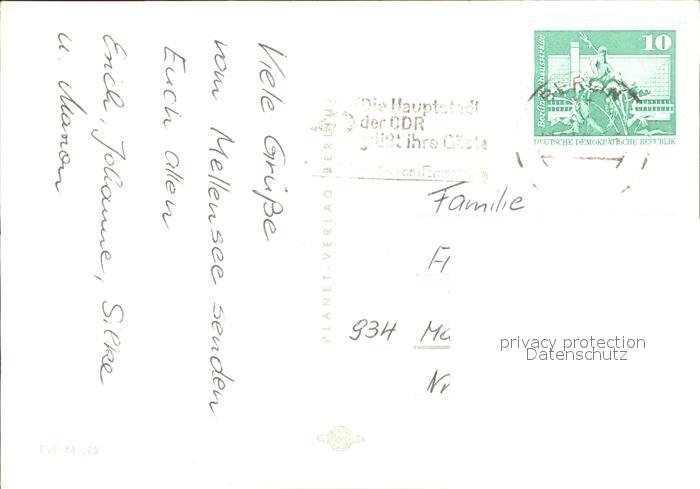 Viele Grüße
vom Mellensee senden
Euch allen
Erich, Johanne, Silke
u. Marion
PLANET-VERLAG BERLIN
EVP M -,25
Die Hauptstadt
der DDR
grüßt ihre Gäste
10
Berlin
DEUTSCHE DEMOKRATISCHE REPUBLIK
BERLIN
Familie
934
privacy protection
Datenschutz